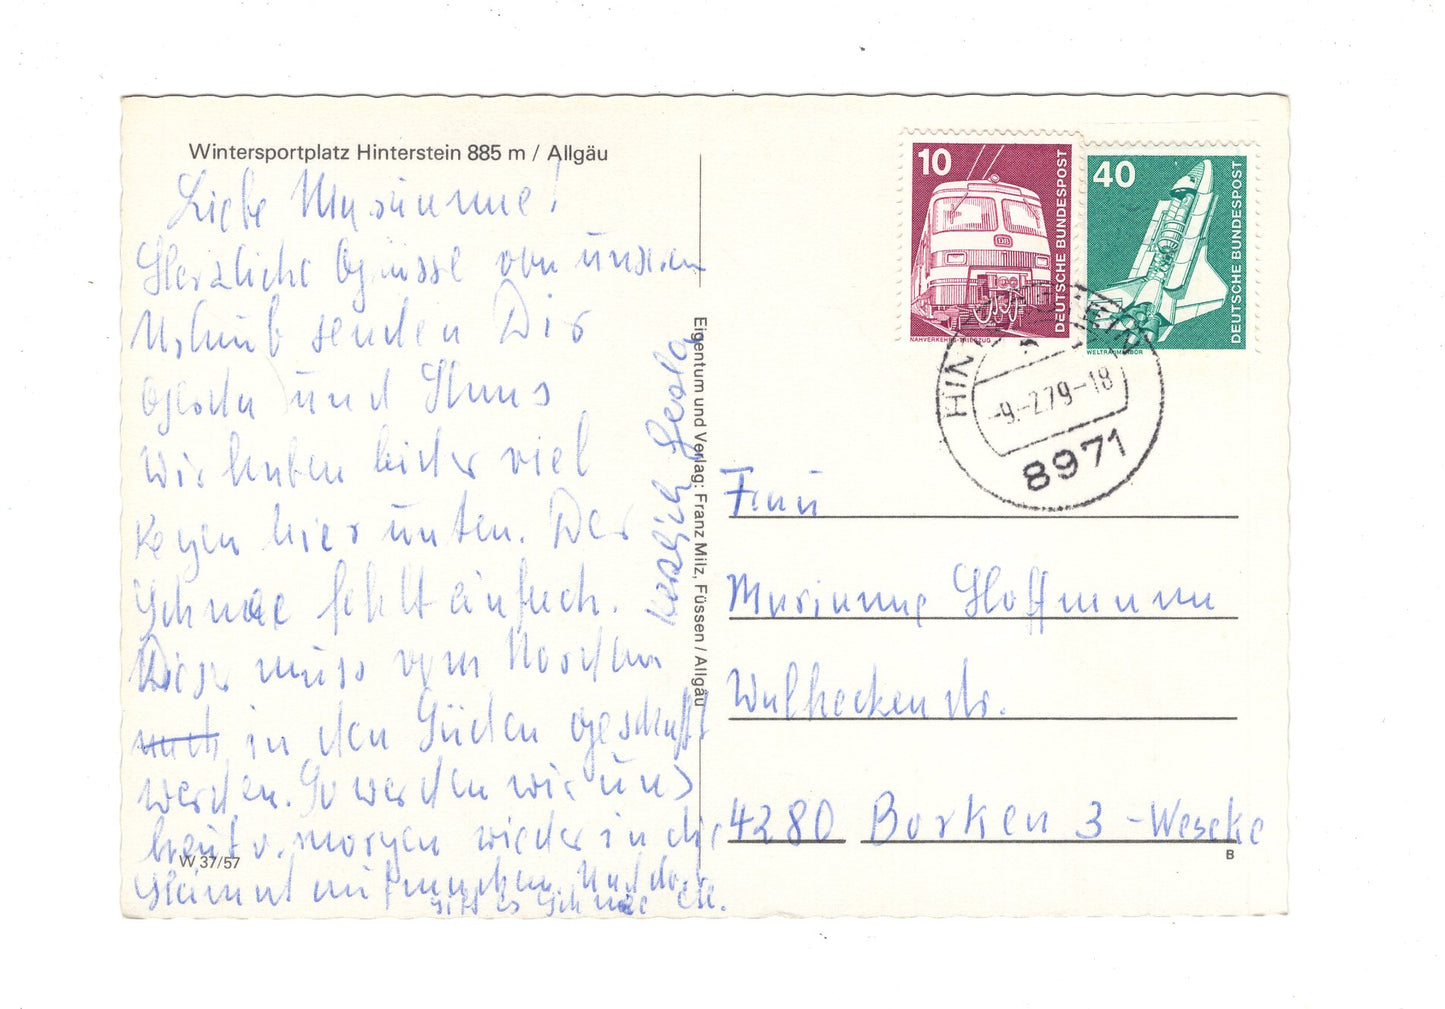 Wintersportplatz Hinterstein 885 m / Allgäu
Liebe Marianne!
Herzliche Grüsse von unserem
Urlaub senden Dir
Gerda und Hans
Wir haben leider viel
Regen hier unten. Der
Schnee fehlt einfach.
Dieser muss vom Norden
nach in den Süden geschafft
werden. So werden wir uns
heut v. morgen wieder in die
Heimat aufmachen. Und dort
gibt es Schnee etc.
W 37/57
Herzlich Gerda
Eigentum und Verlag: Franz Milz, Füssen / Allgäu
10
DEUTSCHE BUNDESPOST
NAHVERKEHRS-TRIEBZUG
40
DEUTSCHE BUNDESPOST
WELTRAUMLABOR
-9.-2.79-18
8971
Frau
Marianne Hoffmann
Walheckenstr.
4280 Borken 3 - Weseke
B